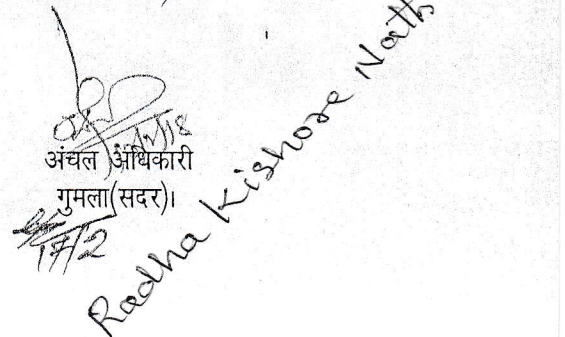 अंचल अधिकारी
गुमला(सदर)।
17/2
Radha Kishore Nath